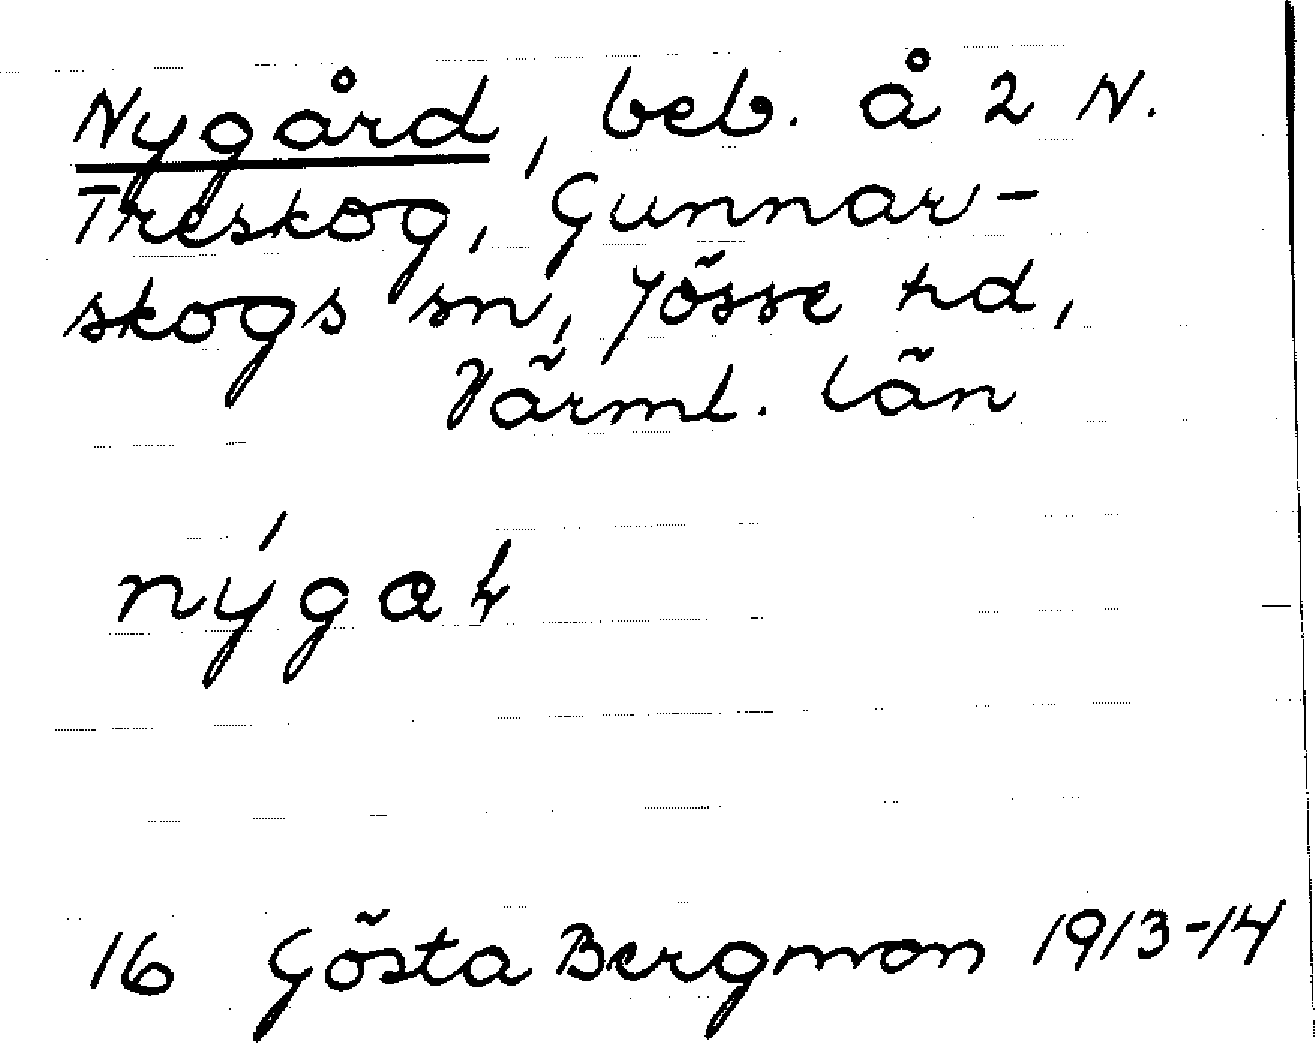 Nygård, beb. å 2 N.
Treskog, Gunnar-
skogs sn, Jösse hd,
Värml. län
nýgaɫ
16 Gösta Bergman 1913-14